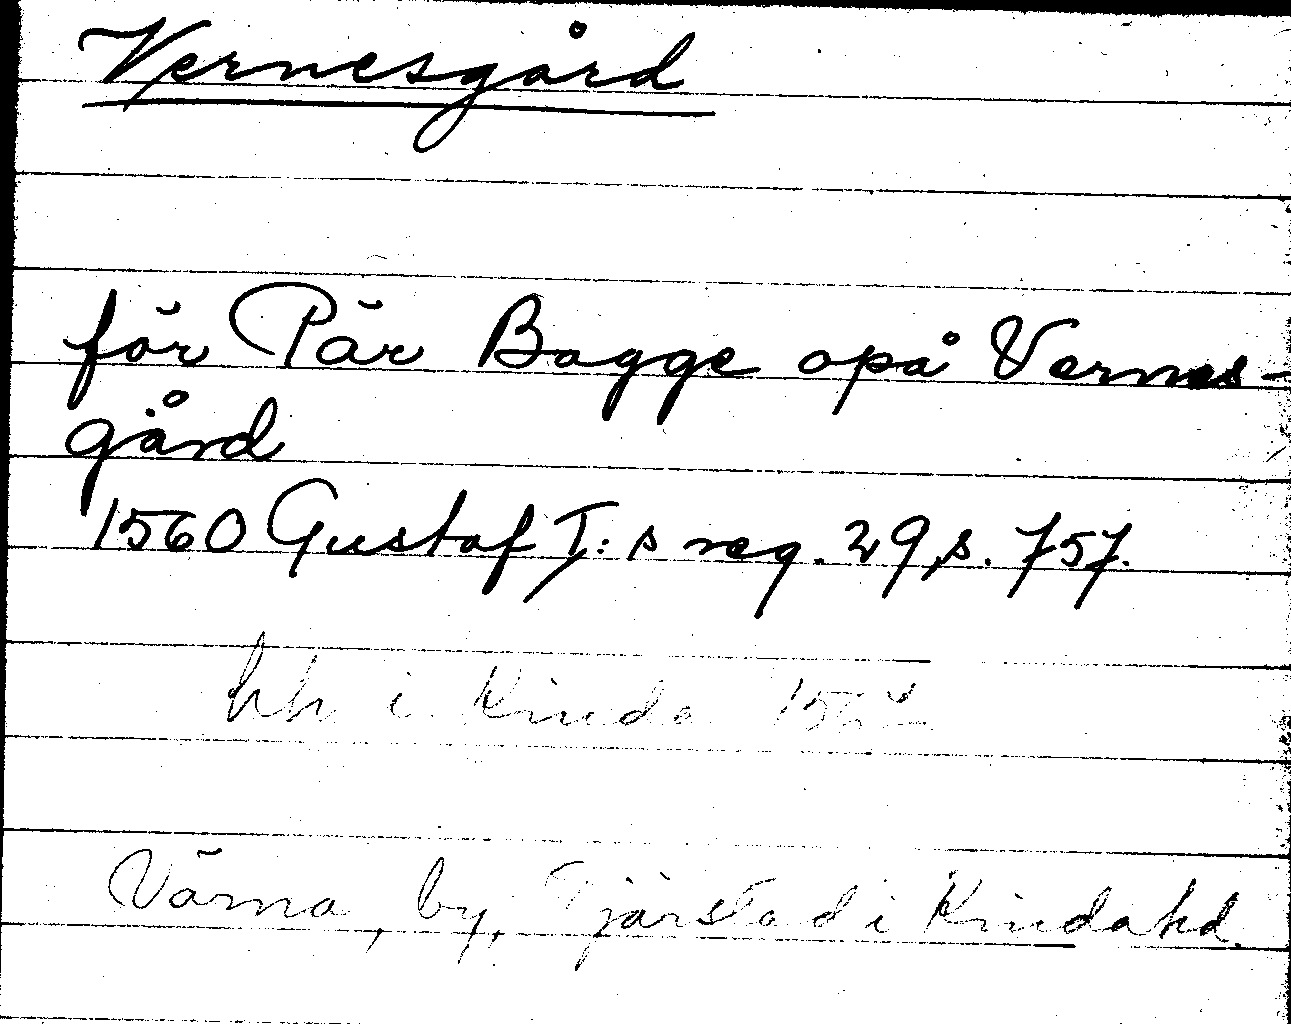 Vernesgård
för Pär Bagge opå Vernes-
gård
1560 Gustaf I:s reg. 29, s. 757.
hh i Kinda
Värna, by, Tjärstad i Kinda hd.